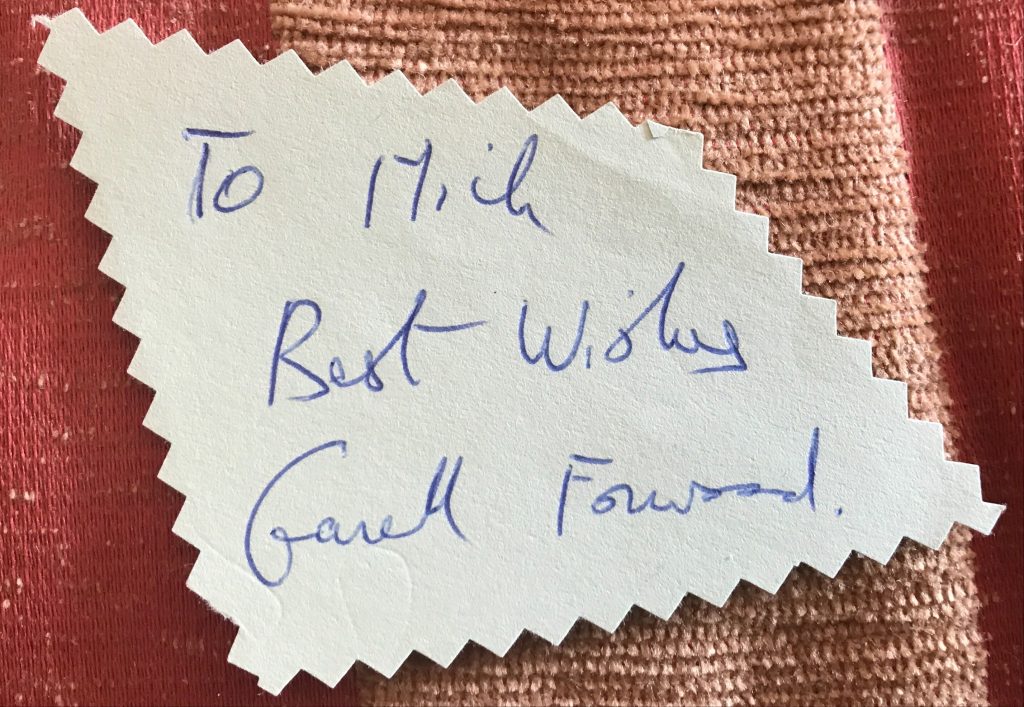 To Mick
Best Wishes
Gareth Forwood.